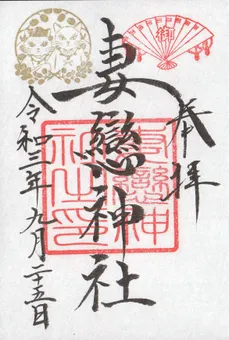 奉拝
妻戀神社
妻戀神
社之印
令和三年九月二十五日